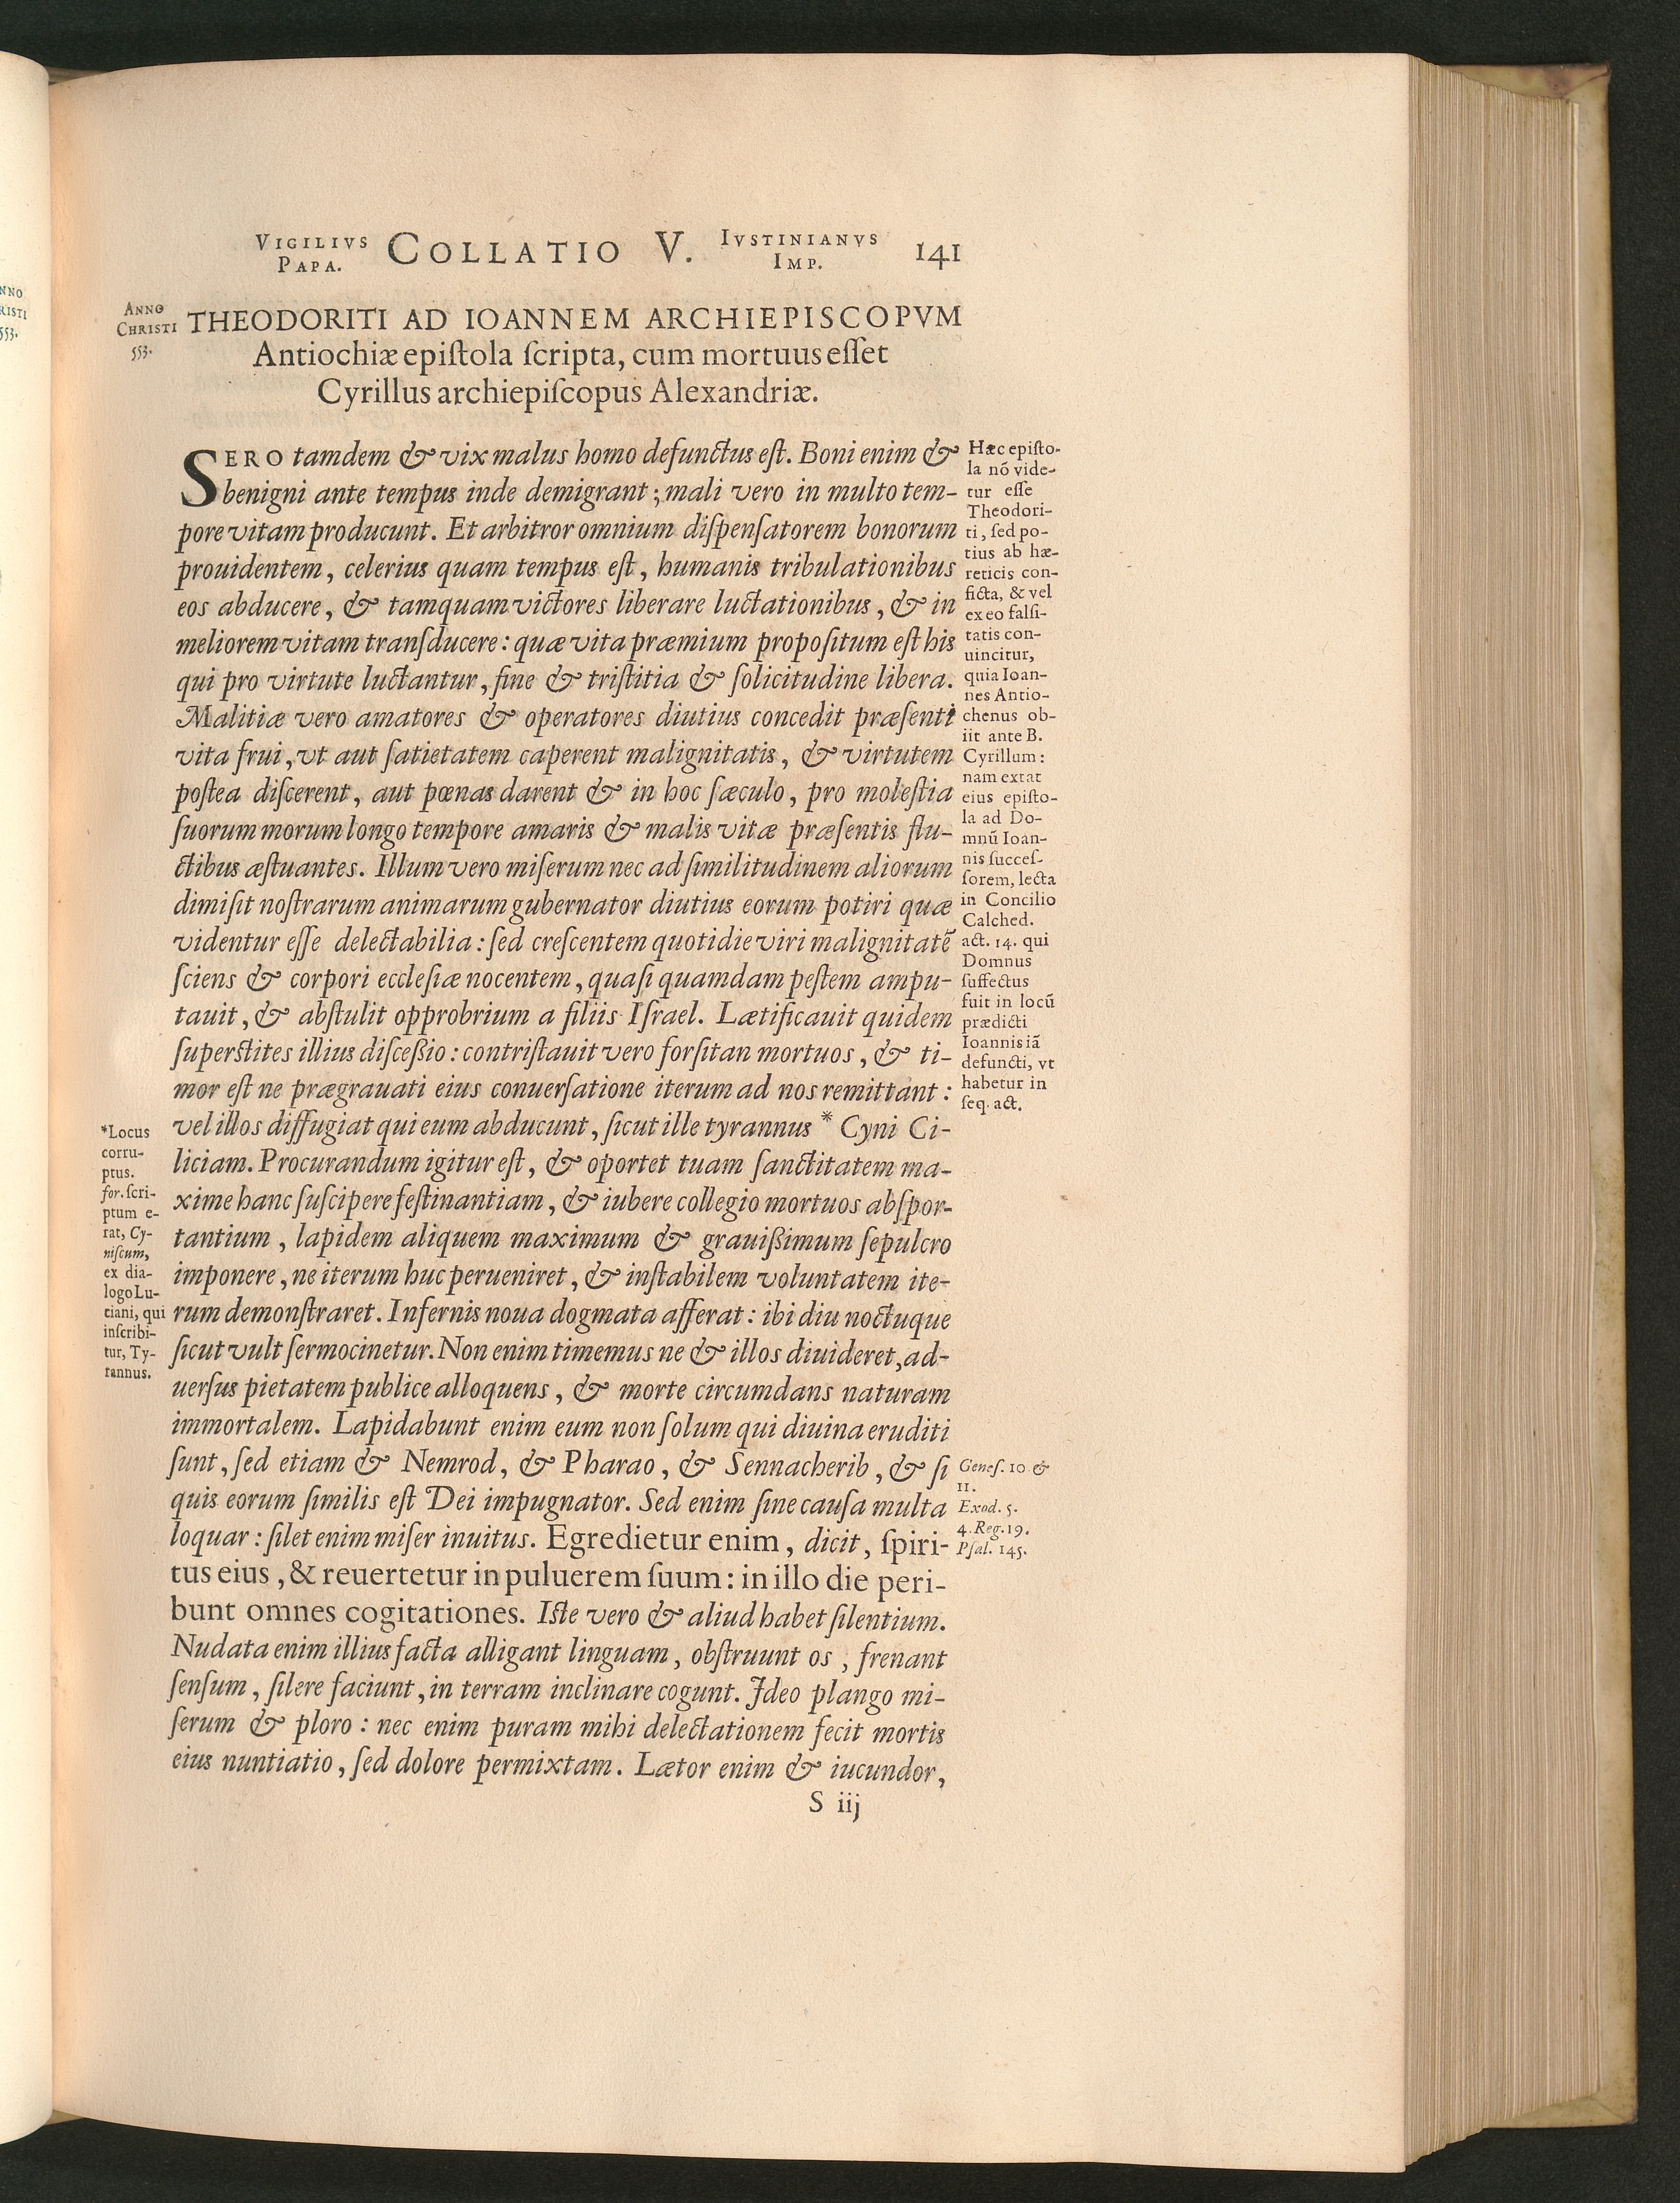 NNO
RISTI
553.
VIGILIVS PAPA. COLLATIO V. IVSTINIANVS IMP. 141
ANNO
CHRISTI
553.
THEODORITI AD IOANNEM ARCHIEPISCOPVM
Antiochiæ epiſtola ſcripta, cum mortuus eſſet
Cyrillus archiepiſcopus Alexandriæ.
SERO tamdem & vix malus homo defunctus eſt. Boni enim &
benigni ante tempus inde demigrant; mali vero in multo tem-
pore vitam producunt. Et arbitror omnium diſpenſatorem bonorum
prouidentem, celerius quam tempus eſt, humanis tribulationibus
eos abducere, & tamquam victores liberare luctationibus, & in
meliorem vitam tranſducere: quæ vita præmium propoſitum eſt his
qui pro virtute luctantur, ſine & triſtitia & ſolicitudine libera.
Malitiæ vero amatores & operatores diutius concedit præſenti
vita frui, vt aut ſatietatem caperent malignitatis, & virtutem
poſtea diſcerent, aut pœnas darent & in hoc ſæculo, pro moleſtia
ſuorum morum longo tempore amaris & malis vitæ præſentis flu-
ctibus æſtuantes. Illum vero miſerum nec ad ſimilitudinem aliorum
dimiſit noſtrarum animarum gubernator diutius eorum potiri quæ
videntur eſſe delectabilia: ſed creſcentem quotidie viri malignitatē
ſciens & corpori eccleſiæ nocentem, quaſi quamdam peſtem ampu-
tauit, & abſtulit opprobrium a filiis Iſrael. Lætificauit quidem
ſuperſtites illius diſceßio: contriſtauit vero forſitan mortuos, & ti-
mor eſt ne prægrauati eius conuerſatione iterum ad nos remittant:
vel illos diffugiat qui eum abducunt, ſicut ille tyrannus * Cyni Ci-
liciam. Procurandum igitur eſt, & oportet tuam ſanctitatem ma-
xime hanc ſuſcipere feſtinantiam, & iubere collegio mortuos abſpor-
tantium, lapidem aliquem maximum & grauißimum ſepulcro
imponere, ne iterum huc perueniret, & inſtabilem voluntatem ite-
rum demonſtraret. Infernis noua dogmata afferat: ibi diu noctuque
ſicut vult ſermocinetur. Non enim timemus ne & illos diuideret, ad-
uerſus pietatem publice alloquens, & morte circumdans naturam
immortalem. Lapidabunt enim eum non ſolum qui diuina eruditi
ſunt, ſed etiam & Nemrod, & Pharao, & Sennacherib, & ſi
quis eorum ſimilis eſt Dei impugnator. Sed enim ſine cauſa multa
loquar: ſilet enim miſer inuitus. Egredietur enim, dicit, ſpiri-
tus eius, & reuertetur in puluerem ſuum: in illo die peri-
bunt omnes cogitationes. Iſte vero & aliud habet ſilentium.
Nudata enim illius facta alligant linguam, obſtruunt os, frenant
ſenſum, ſilere faciunt, in terram inclinare cogunt. Ideo plango mi-
ſerum & ploro: nec enim puram mihi delectationem fecit mortis
eius nuntiatio, ſed dolore permixtam. Lætor enim & iucundor,
S iij
Hæc epiſto-
la nō vide-
tur eſſe
Theodori-
ti, ſed po-
tius ab hæ-
reticis con-
ficta, & vel
ex eo falſi-
tatis con-
uincitur,
quia Ioan-
nes Antio-
chenus ob-
iit ante B.
Cyrillum:
nam extat
eius epiſto-
la ad Do-
mnū Ioan-
nis ſucceſ-
ſorem, lecta
in Concilio
Calched.
act. 14. qui
Domnus
ſuffectus
fuit in locū
prædicti
Ioannis iā
defuncti, vt
habetur in
ſeq. act.
*Locus
corru-
ptus.
for. ſcri-
ptum e-
rat, Cy-
niſcum,
ex dia-
logo Lu-
ciani, qui
inſcribi-
tur, Ty-
rannus.
Geneſ. 10 &
11.
Exod. 5.
4. Reg. 19.
Pſal. 145.